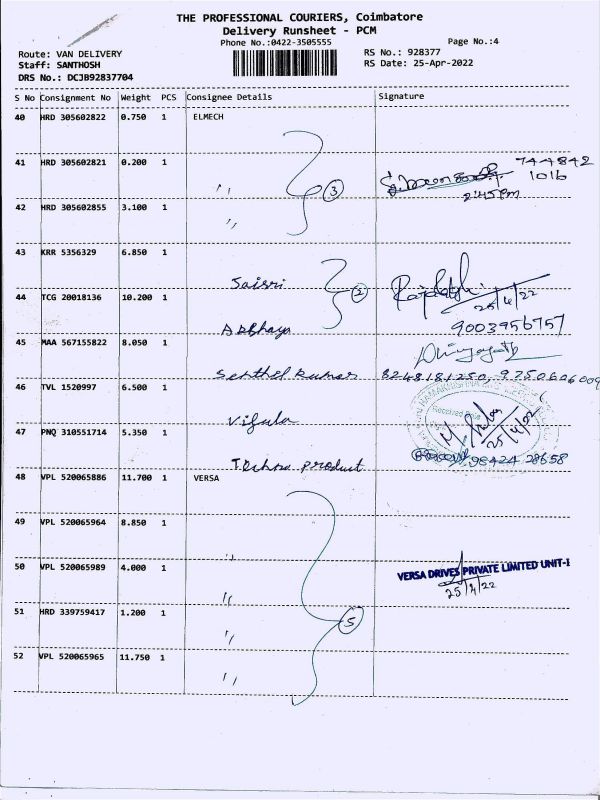 THE PROFESSIONAL COURIERS, Coimbatore
Delivery Runsheet - PCM
Phone No.:0422-3505555
Page No.:4
Route: VAN DELIVERY
RS No.: 928377
Staff: SANTHOSH
RS Date: 25-Apr-2022
DRS No.: DCJB92837704
S No Consignment No Weight PCS Consignee Details Signature
40 HRD 305602822 0.750 1 ELMECH
41 HRD 305602821 0.200 1 〃 744842
1016
3
2:45pm
42 HRD 305602855 3.100 1 〃
43 KRR 5356329 6.850 1 Saisri
2
25/4/22
44 TCG 20018136 10.200 1 Abbhaya
9003956757
45 MAA 567155822 8.050 1 Senthil kumar
8248181250, 9750606009
46 TVL 1520997 6.500 1
Received
25/4/22
47 PNQ 310551714 5.350 1 Techno product
98424 28658
48 VPL 520065886 11.700 1 VERSA
49 VPL 520065964 8.850 1 〃
50 VPL 520065989 4.000 1 〃
VERSA DRIVES PRIVATE LIMITED UNIT-I
25/4/22
51 HRD 339759417 1.200 1 〃
5
52 VPL 520065965 11.750 1 〃